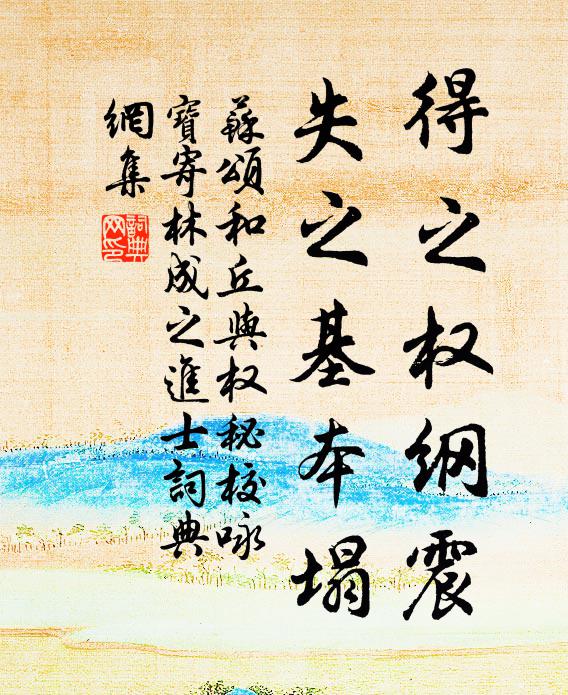 得之权纲震
失之基本塌
蘇頌和丘與权秘校咏
寶寄林成之進士詞典
網集
詞典
网印